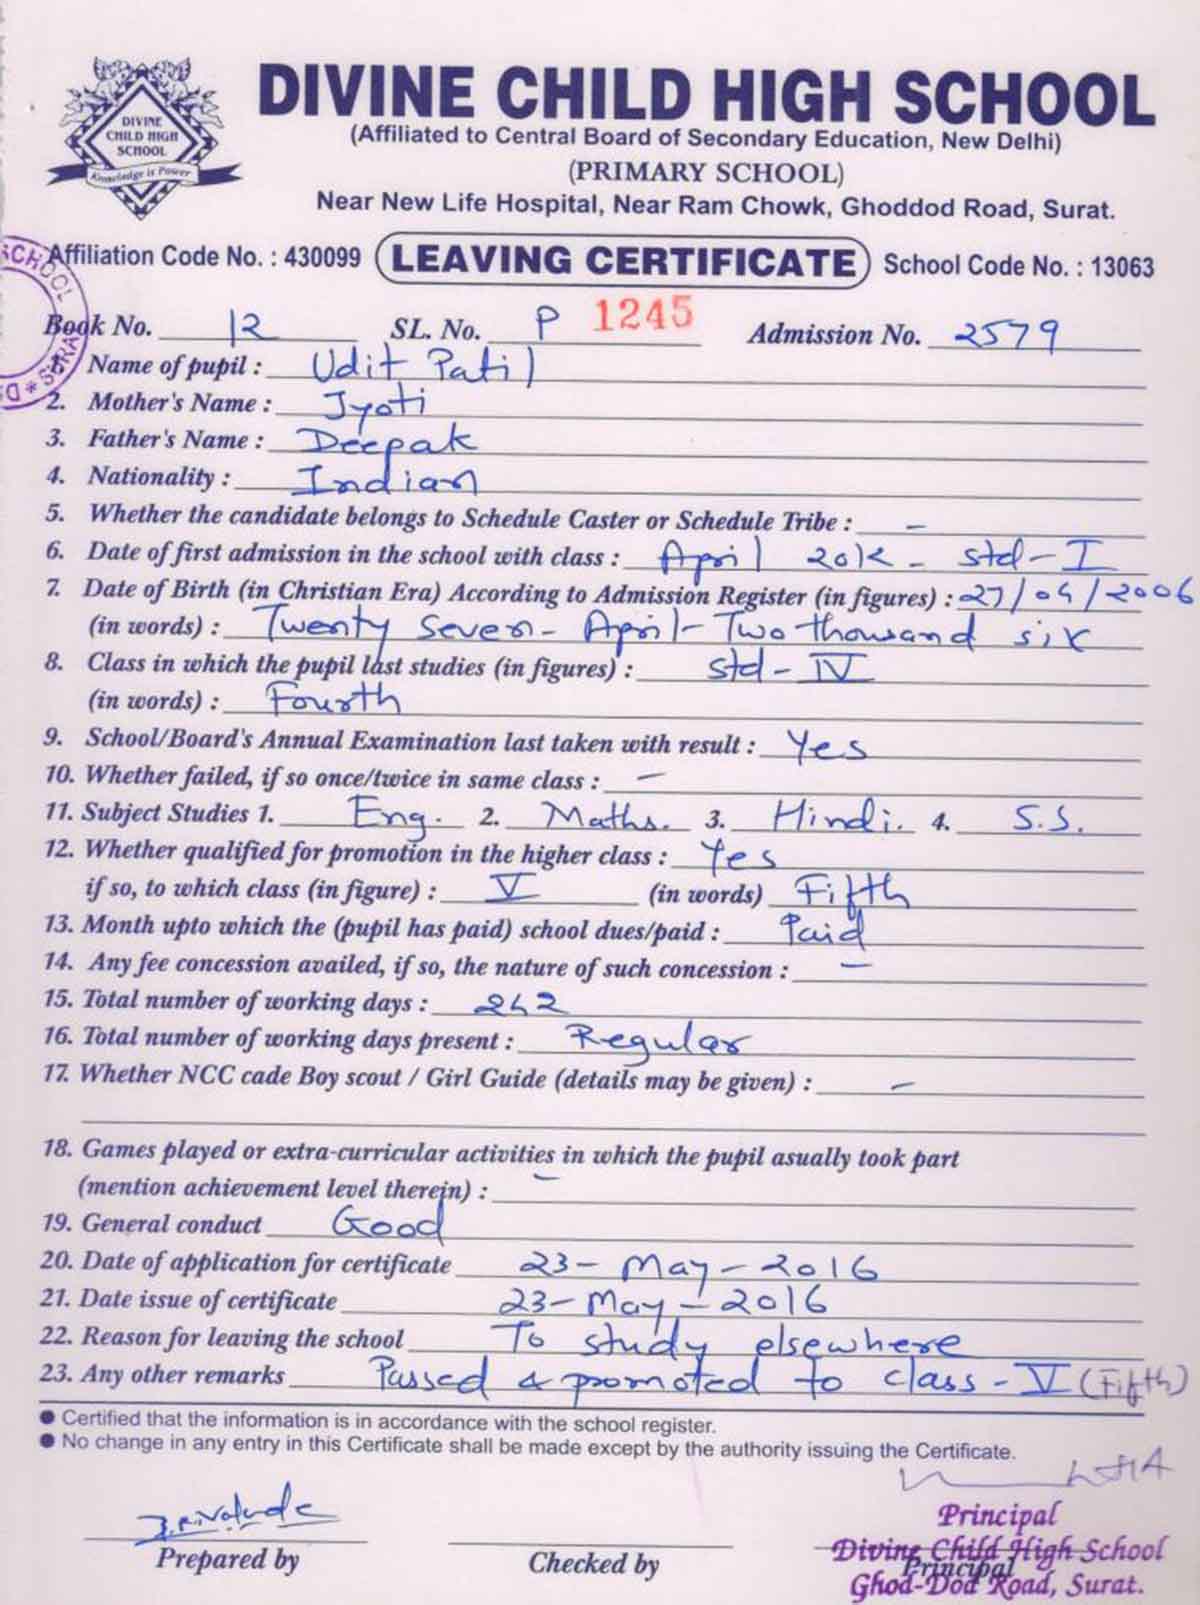 DIVINE CHILD HIGH SCHOOL
Knowledge is Power
DIVINE CHILD HIGH SCHOOL
(Affiliated to Central Board of Secondary Education, New Delhi)
(PRIMARY SCHOOL)
Near New Life Hospital, Near Ram Chowk, Ghoddod Road, Surat.
Affiliation Code No. : 430099 LEAVING CERTIFICATE School Code No. : 13063
SCHOOL SURAT
Book No. 12 SL. No. P 1245 Admission No. 2579
Name of pupil : Udit Patil
2. Mother's Name : Jyoti
3. Father's Name : Deepak
4. Nationality : Indian
5. Whether the candidate belongs to Schedule Caster or Schedule Tribe : -
6. Date of first admission in the school with class : April 2012 - Std-I
7. Date of Birth (in Christian Era) According to Admission Register (in figures) : 27/04/2006
(in words) : Twenty Seven - April - Two thousand six
8. Class in which the pupil last studies (in figures) : Std - IV
(in words) : Fourth
9. School/Board's Annual Examination last taken with result : Yes
10. Whether failed, if so once/twice in same class : -
11. Subject Studies 1. Eng. 2. Maths. 3. Hindi. 4. S.S.
12. Whether qualified for promotion in the higher class : Yes
if so, to which class (in figure) : V (in words) Fifth
13. Month upto which the (pupil has paid) school dues/paid : Paid
14. Any fee concession availed, if so, the nature of such concession : -
15. Total number of working days : 242
16. Total number of working days present : Regular
17. Whether NCC cade Boy scout / Girl Guide (details may be given) : -
18. Games played or extra-curricular activities in which the pupil asually took part
(mention achievement level therein) : -
19. General conduct Good
20. Date of application for certificate 23 - May - 2016
21. Date issue of certificate 23 - May - 2016
22. Reason for leaving the school To study elsewhere
23. Any other remarks Passed & promoted to class - V (Fifth)
● Certified that the information is in accordance with the school register.
● No change in any entry in this Certificate shall be made except by the authority issuing the Certificate.
Principal
Divine Child High School
Ghod-Dod Road, Surat.
Prepared by Checked by Principal